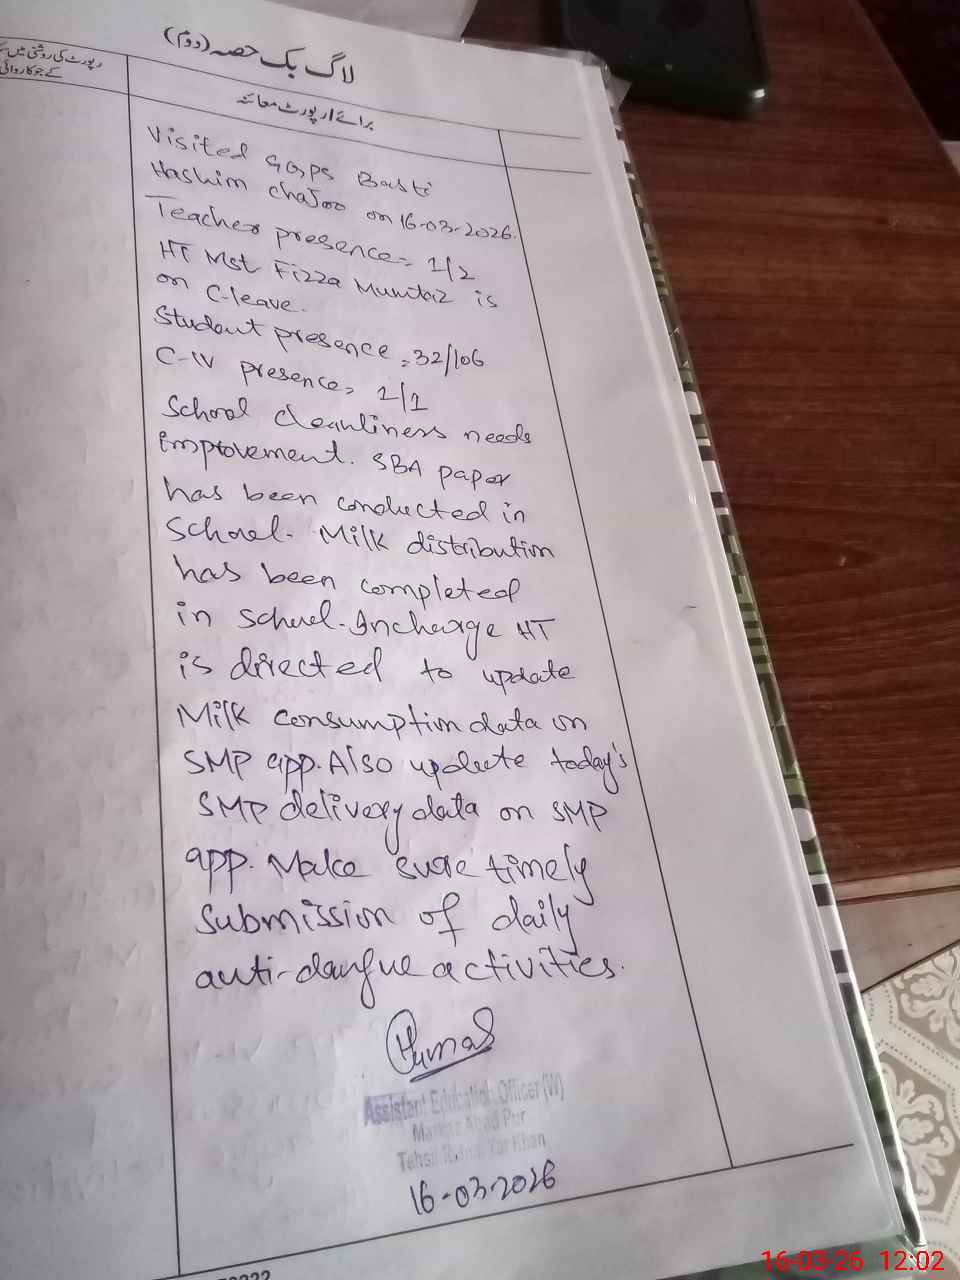 لاگ بک حصہ (دوم)
رپورٹ کی روشنی میں
کے جو کاروائی
برائے رپورٹ معائنہ
Visited GGPS Basti
Hashim chaJoo on 16-03-2026.
Teacher presence = 1/2
HT Mst Fizza Mumtaz is
on C-leave.
Student presence = 32/106
C-IV presence = 1/1
School cleanliness needs
improvement. SBA paper
has been conducted in
School. Milk distribution
has been completed
in school. Incharge HT
is directed to update
Milk consumption data on
SMP app. Also update today's
SMP delivery data on SMP
app. Make sure timely
submission of daily
anti-dangue activities.
Assistant Education Officer (W)
Pur
Tehsil Rahim Yar Khan
16-03-2026
16-03-26 12:02